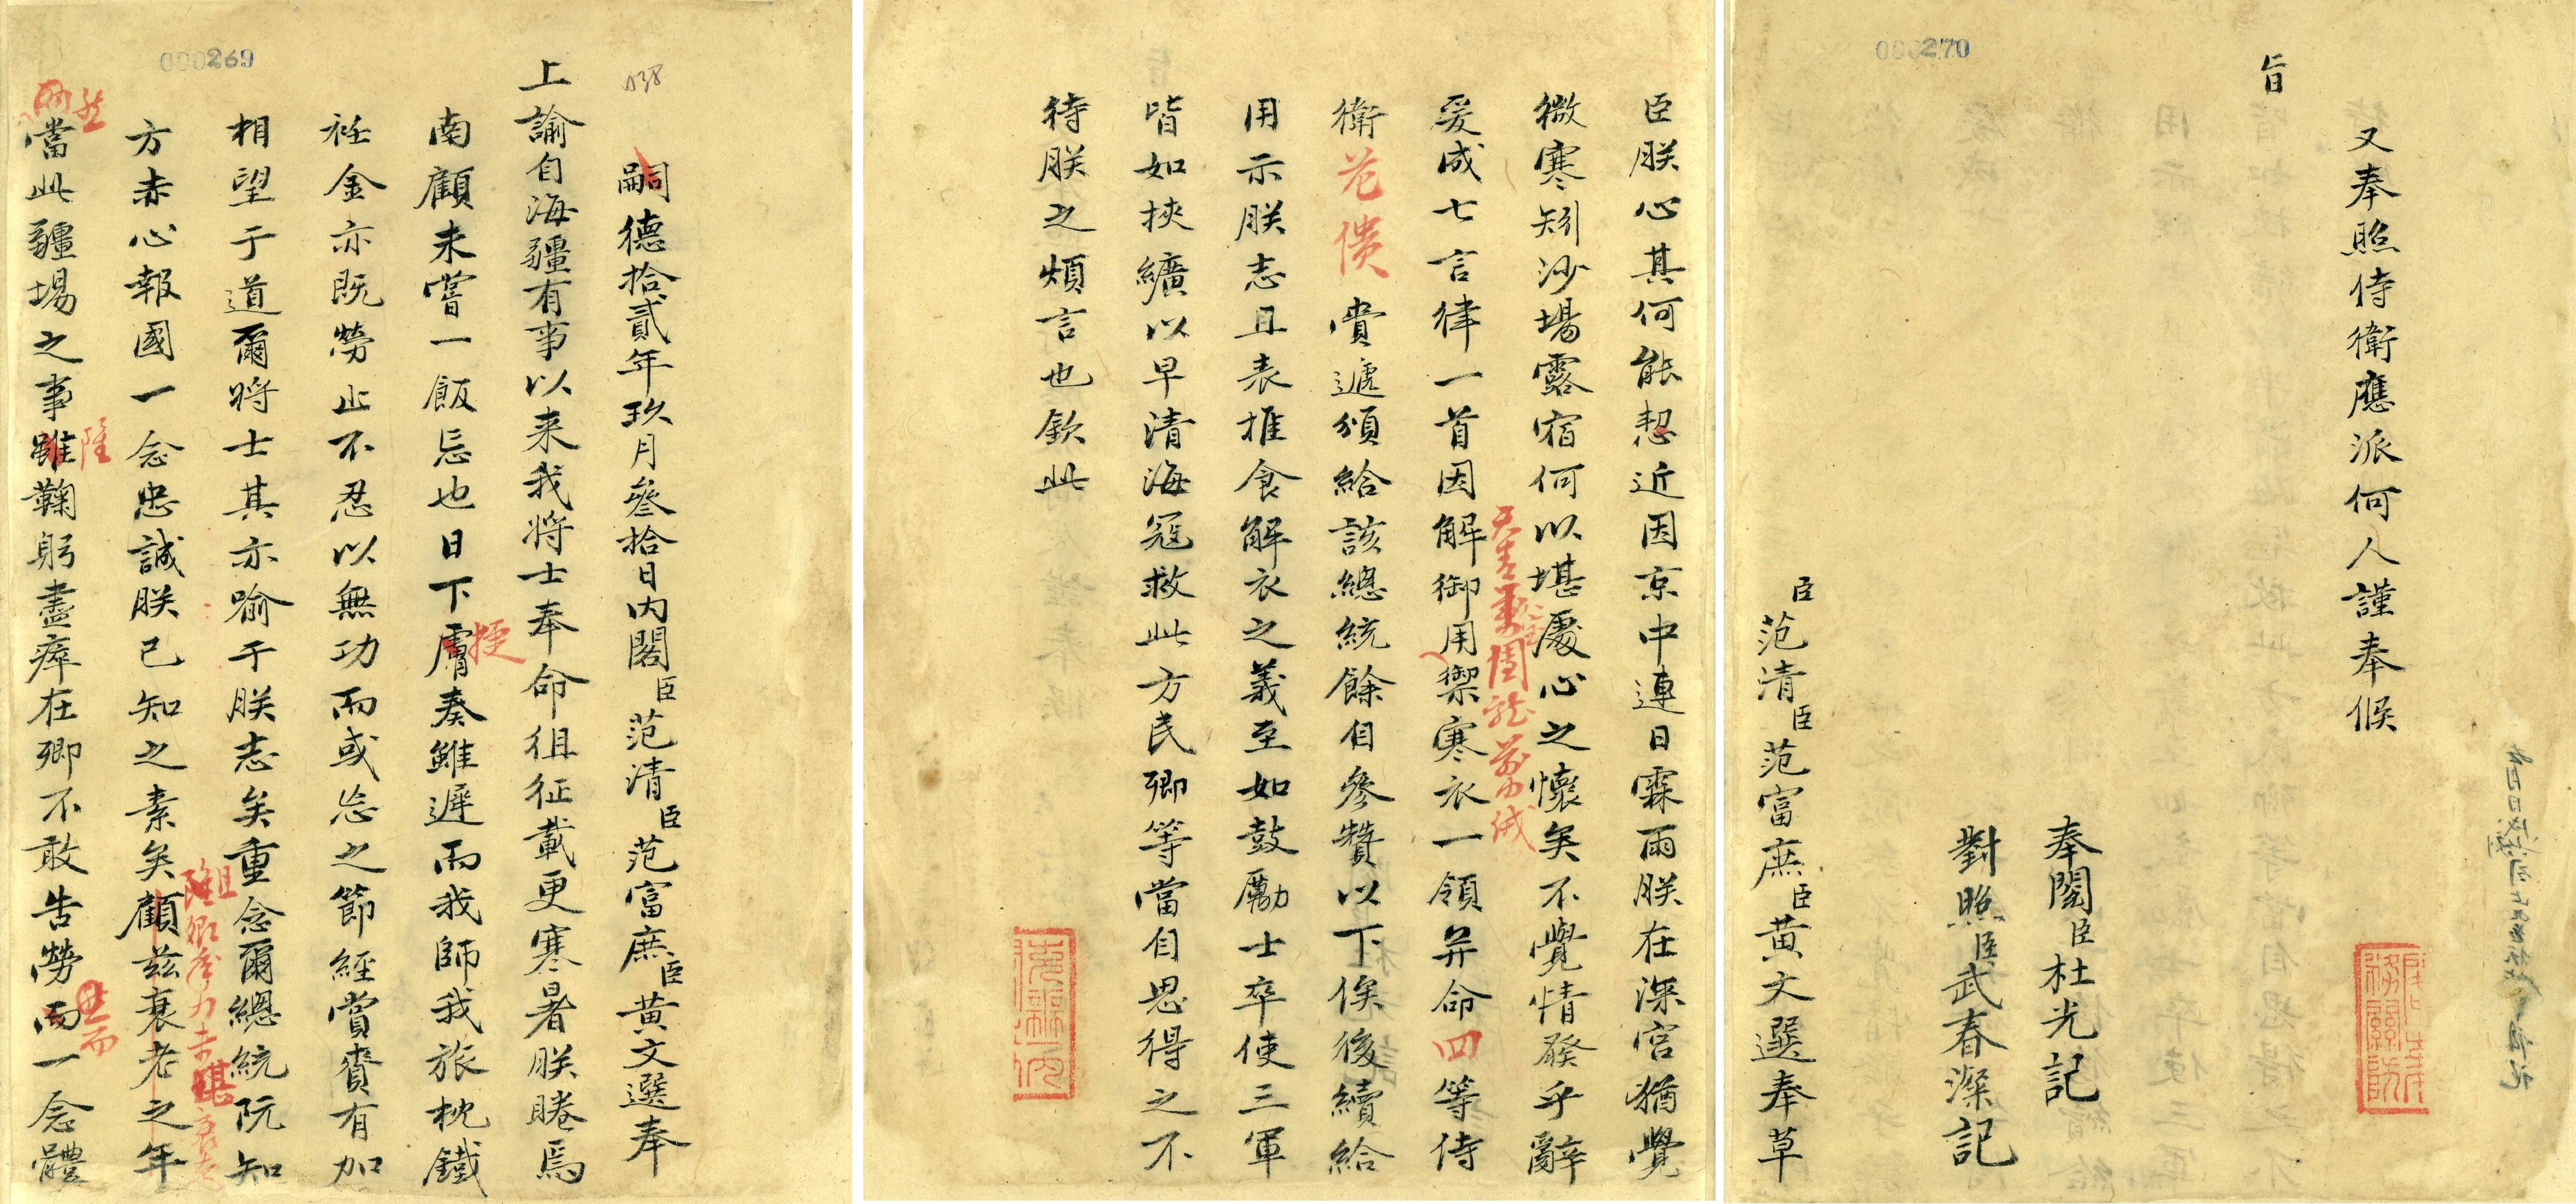 000269
038
嗣德拾貳年玖月叄拾日內閣臣范清臣范富庶臣黃文選奉
上諭自海疆有事以來我將士奉命徂征載更寒暑朕睠焉
南顧未嘗一飯忘也日下膚奏雖遲而我師我旅枕鐵
捷
衽金亦既勞止不忍以無功而或忘之節經賞賚有加
相望于道爾將士其亦喻于朕志矣重念爾總統阮知
方赤心報國一念忠誠朕已知之素矣顧茲衰老之年
當此疆場之事雖鞠躬盡瘁在卿不敢告勞而一念體
臣朕心其何能恝近因京中連日霖雨朕在深宮猶覺
微寒矧沙場露宿何以堪處心之懷矣不覺情發乎辭
爰成七言律一首因解御用禦寒衣一領并命四等侍
衛范僙賫遞頒給該總統餘自參贊以下俟後續給
用示朕志且表推食解衣之義至如鼓勵士卒使三軍
皆如挾纊以早清海寇救此方民卿等當自思得之不
待朕之煩言也欽此
000270
旨
又奉照侍衛應派何人謹奉候
奉閣臣杜光記
對照臣武春深記
臣范清臣范富庶臣黃文選奉草